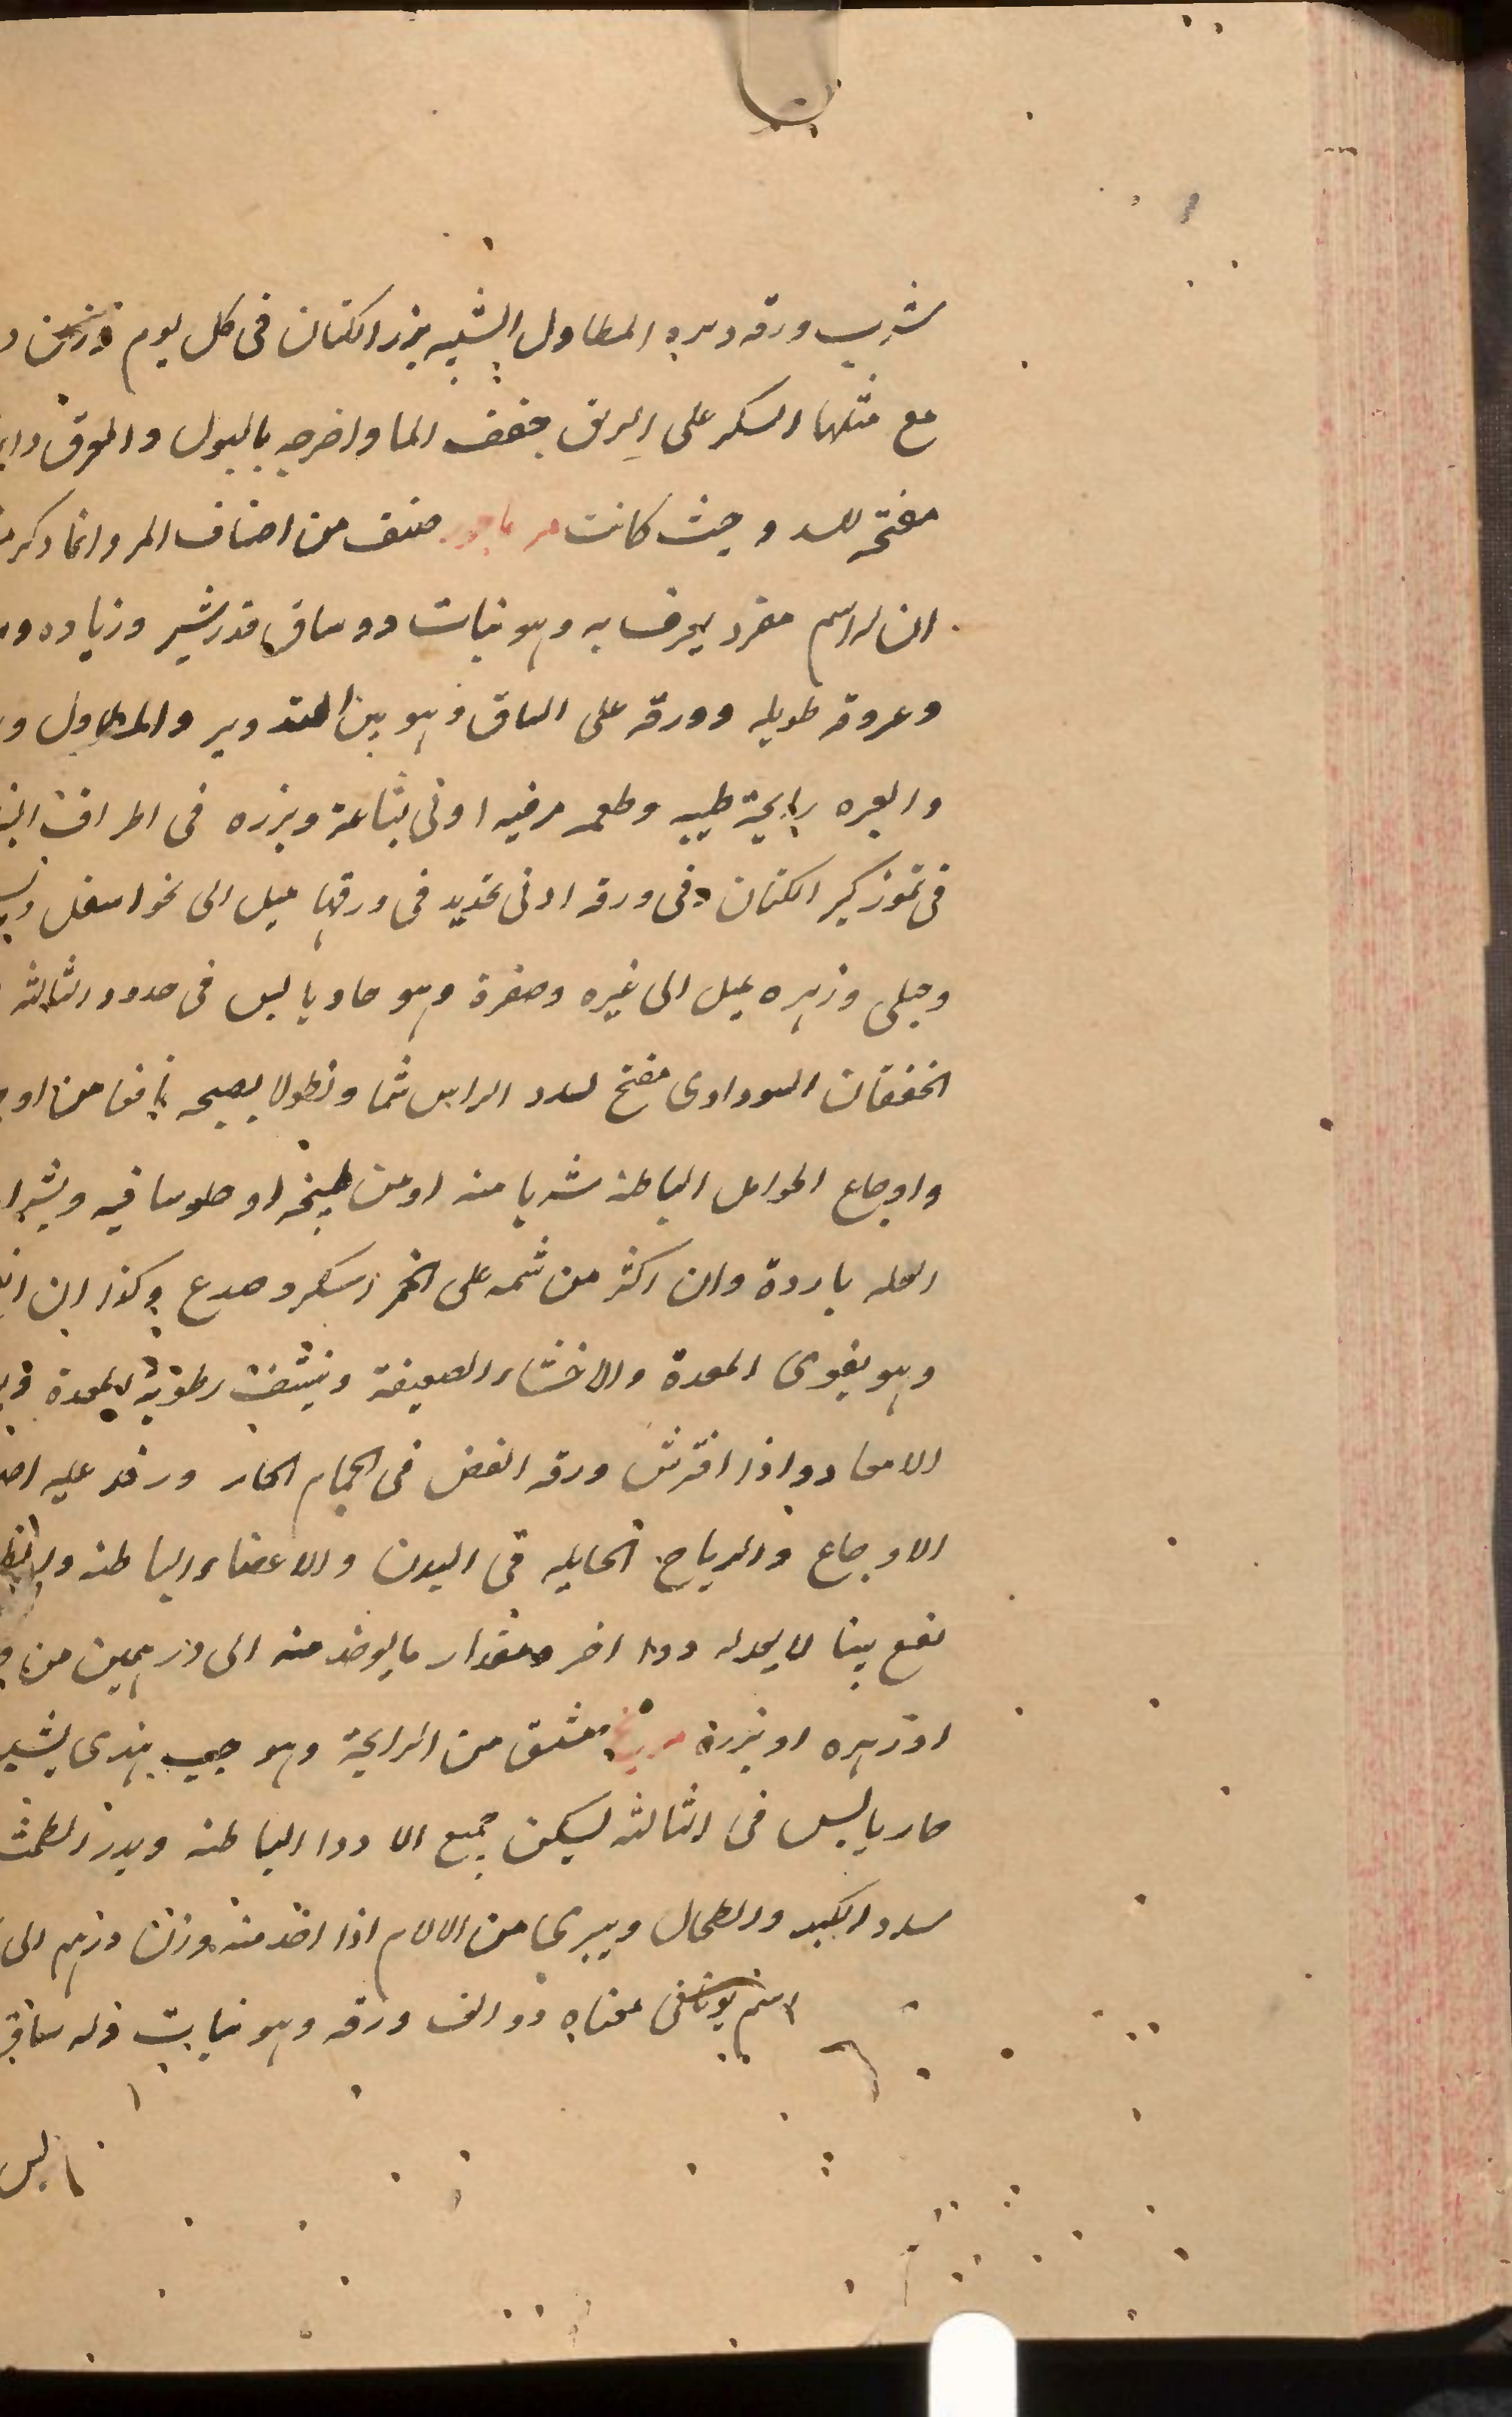 شرب ورقه وبزره المطاول الشبيه ببزر الكتان فى كل يوم وزن
مع مثلها السكر على الريق جفف الما واخرجه بالبول والعرق
مفتحه للسدد حيث كانت مر ماحور صنف من اصناف المر وانما ذكر
ان له اسم مفرد يعرف به وهو نبات ذو ساق قدر شبر وزياده
وعروقه طويله وورقه على الساق وهو بين التدوير والمطاول
والعبره رايحة طيبه وطعمه مر فيه ادنى بشاعة وبزره فى اطراف
فى تموز كبزر الكتان وفى ورقه ادنى تحديد فى ورقها ميل الى نحو اسفل
وجبلى وزهره يميل الى غبره وصفرة وهو حار يابس فى حدود الثالثه
الخفقان السوداوى مفتح لسدد الراس شما ونطولا بطبيخه نافعا من
واوجاع الحوامل الباطنه شربا منه او من طبيخه او جلوسا فيه
العله باردة وان اكثر من شمه على الخمر اسكر وصدع وكذا ان
وهو يقوى المعدة والاحشاء الضعيفة وينشف رطوبة المعدة
الامعا واذا افترش ورقه الغض فى الحمام الحار ورقد عليه
الاوجاع والرياح الحايله فى البدن والاعضاء الباطنه
نفع بينا لا يعدله دوا اخر ومقدار ما يوخذ منه الى درهمين من
او زهره او بزره مشتق من الرايحة وهو حب هندى يشبه
حار يابس فى الثالثه ليسكن جميع الادوا الباطنه ويدر الطمث
سدد الكبد والطحال ويبرى من الالام اذا اخذ منه وزن درهم الى
اسم يونانى معناه ذو الف ورقه وهو نبات وله ساق